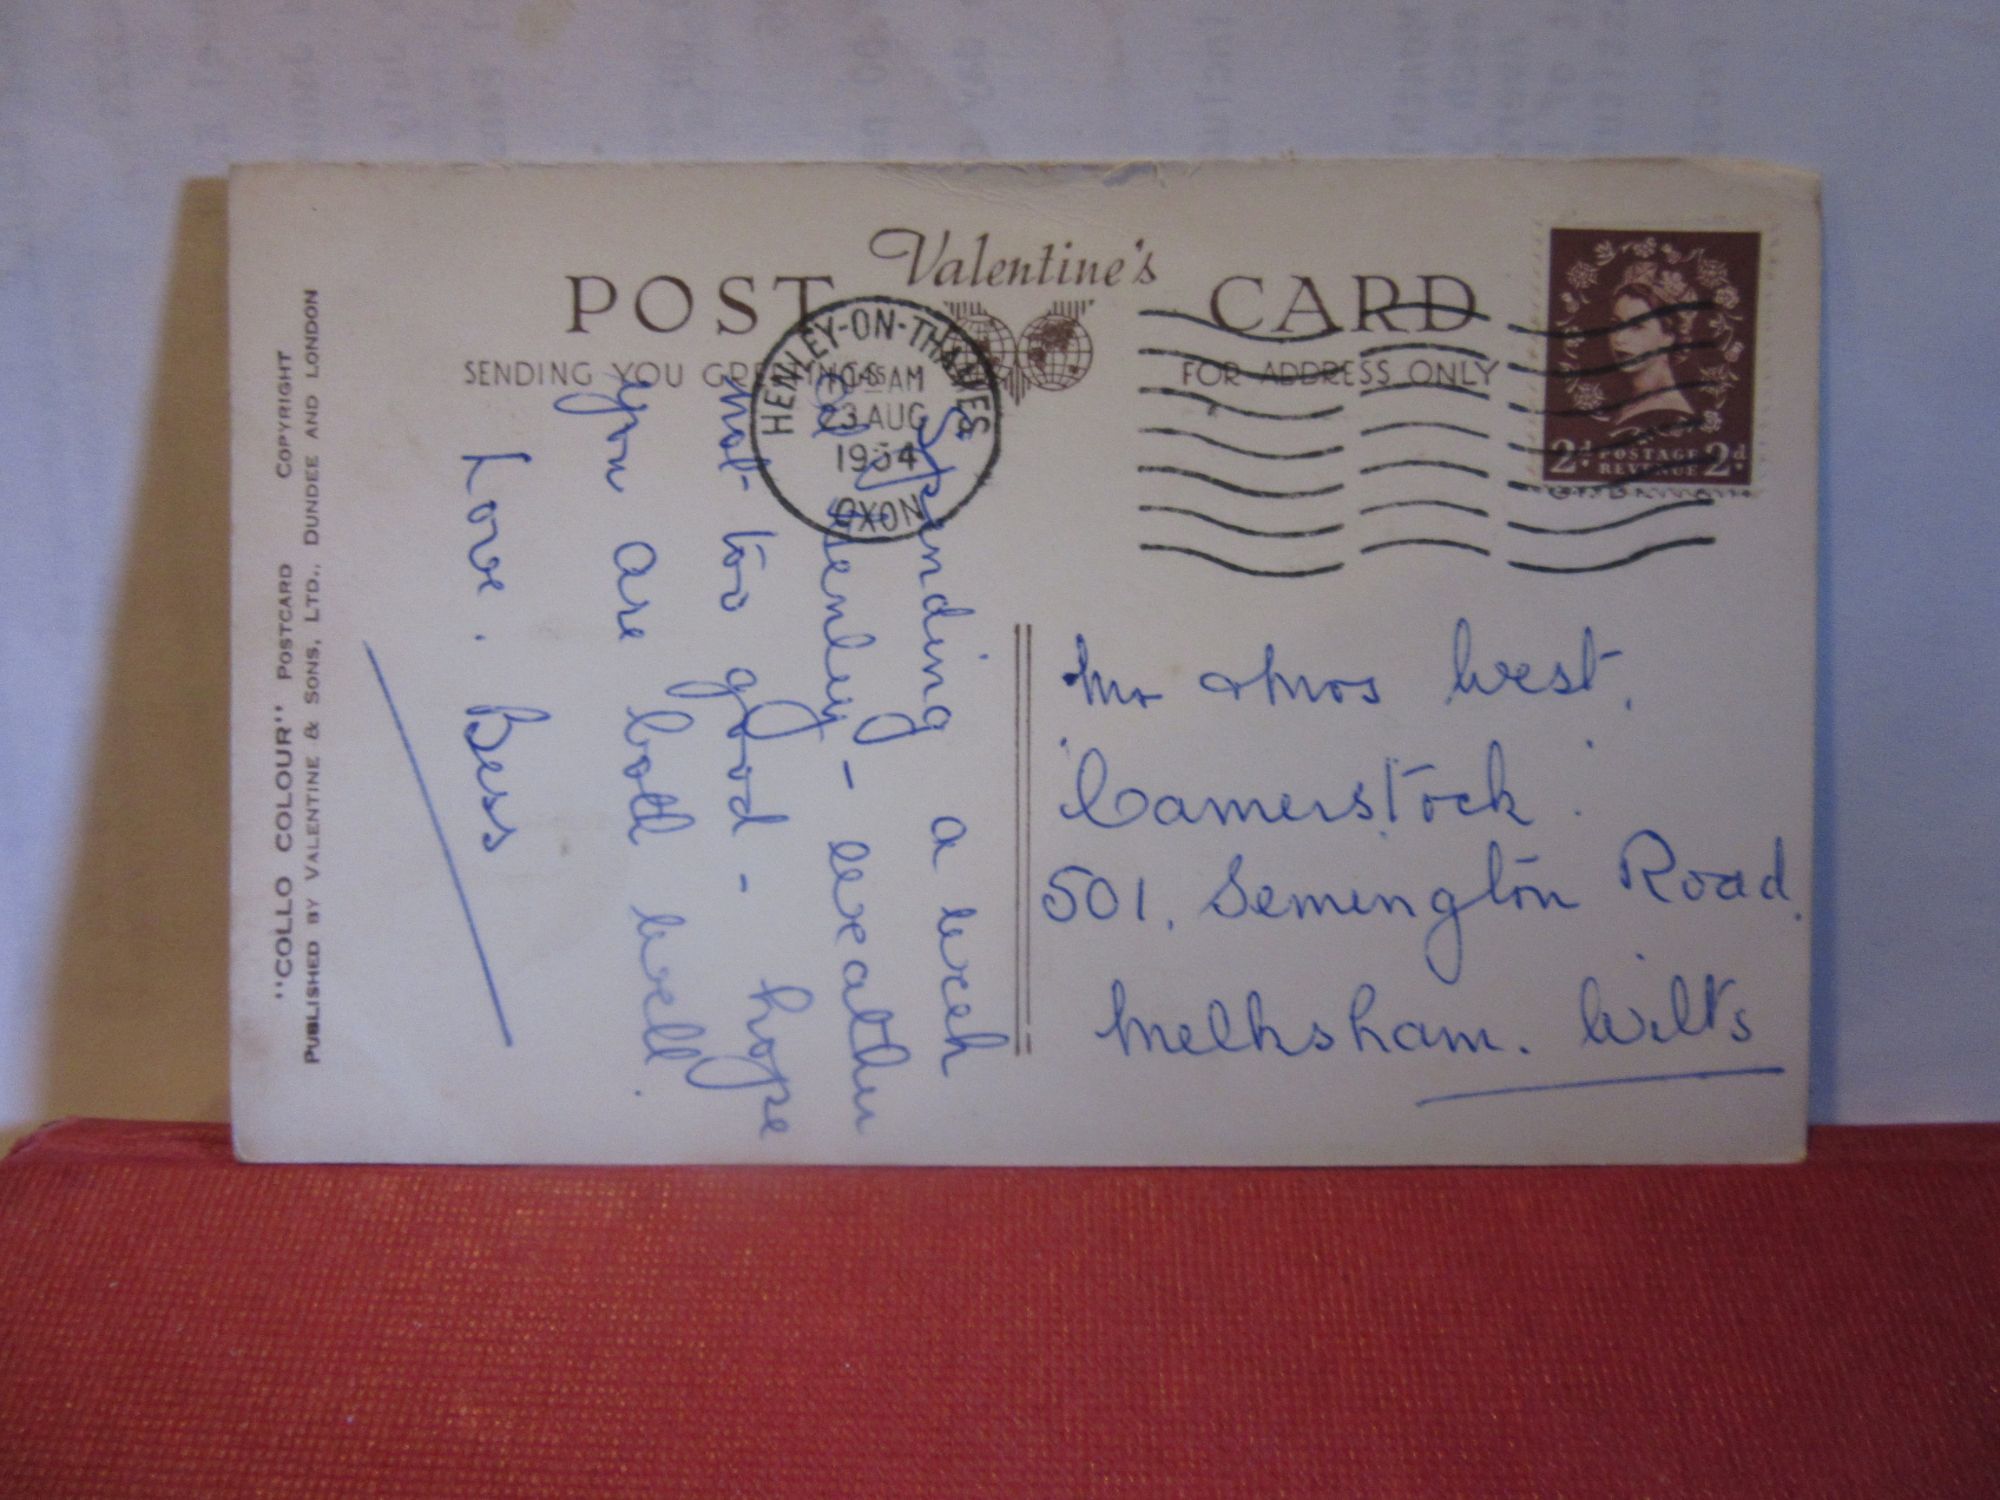 Valentine's
POST CARD
SENDING YOU GREETINGS
FOR ADDRESS ONLY
HENLEY-ON-THAMES
AM
23 AUG
1954
OXON
2d POSTAGE REVENUE 2d
Spending a week
at Henley - weather
not too good - hope
you are both well.
Love. Bess
Mr & Mrs West,
'Camerstock'
501, Semington Road,
Melksham. Wilts
"COLLO COLOUR" POSTCARD COPYRIGHT
PUBLISHED BY VALENTINE & SONS, LTD., DUNDEE AND LONDON